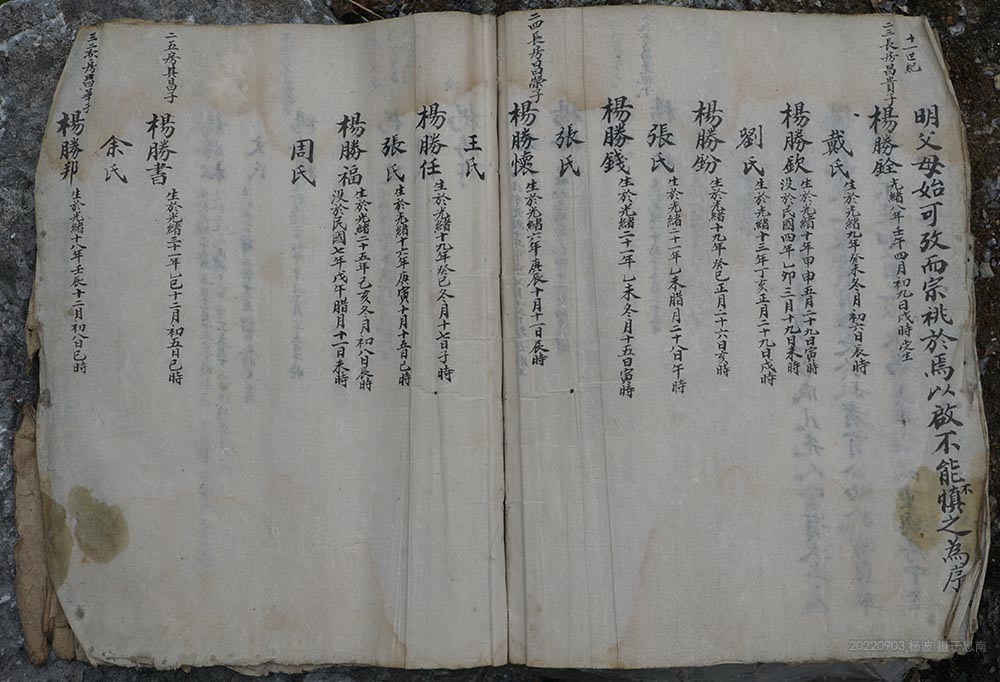 明父母始可攷而宗祧於焉以啟不能不慎之為序
十一世紀
二三長房昌貴子
楊勝銓 光緒八年壬午四月初九日戌時受生
戴氏 生於光緒九年癸未冬月初六日辰時
楊勝欽 生於光緒十年甲申五月二十九日寅時
沒於民國四年乙卯三月十九日未時
劉氏 生於光緒十三年丁亥正月二十九日戌時
楊勝鈖 生於光緒十九年癸巳正月二十六日亥時
張氏 生於光緒二十一年乙未腊月二十八日午時
楊勝錢 生於光緒二十一年乙未冬月十五日寅時
張氏
二四長房昌榮子
楊勝懷 生於光緒六年庚辰十月十一日辰時
王氏
楊勝任 生於光緒十九年癸巳冬月十七日子時
張氏 生於光緒十六年庚寅十月十五日巳時
楊勝福 生於光緒二十五年乙亥冬月初八日辰時
沒於民國七年戊午腊月十一日未時
周氏
二五房其昌子
楊勝書 生於光緒三十一年乙巳十二月初五日巳時
余氏
房昌華子
楊勝邦 生於光緒十八年壬辰十二月初八日巳時
20220903 杨波 摄于思南